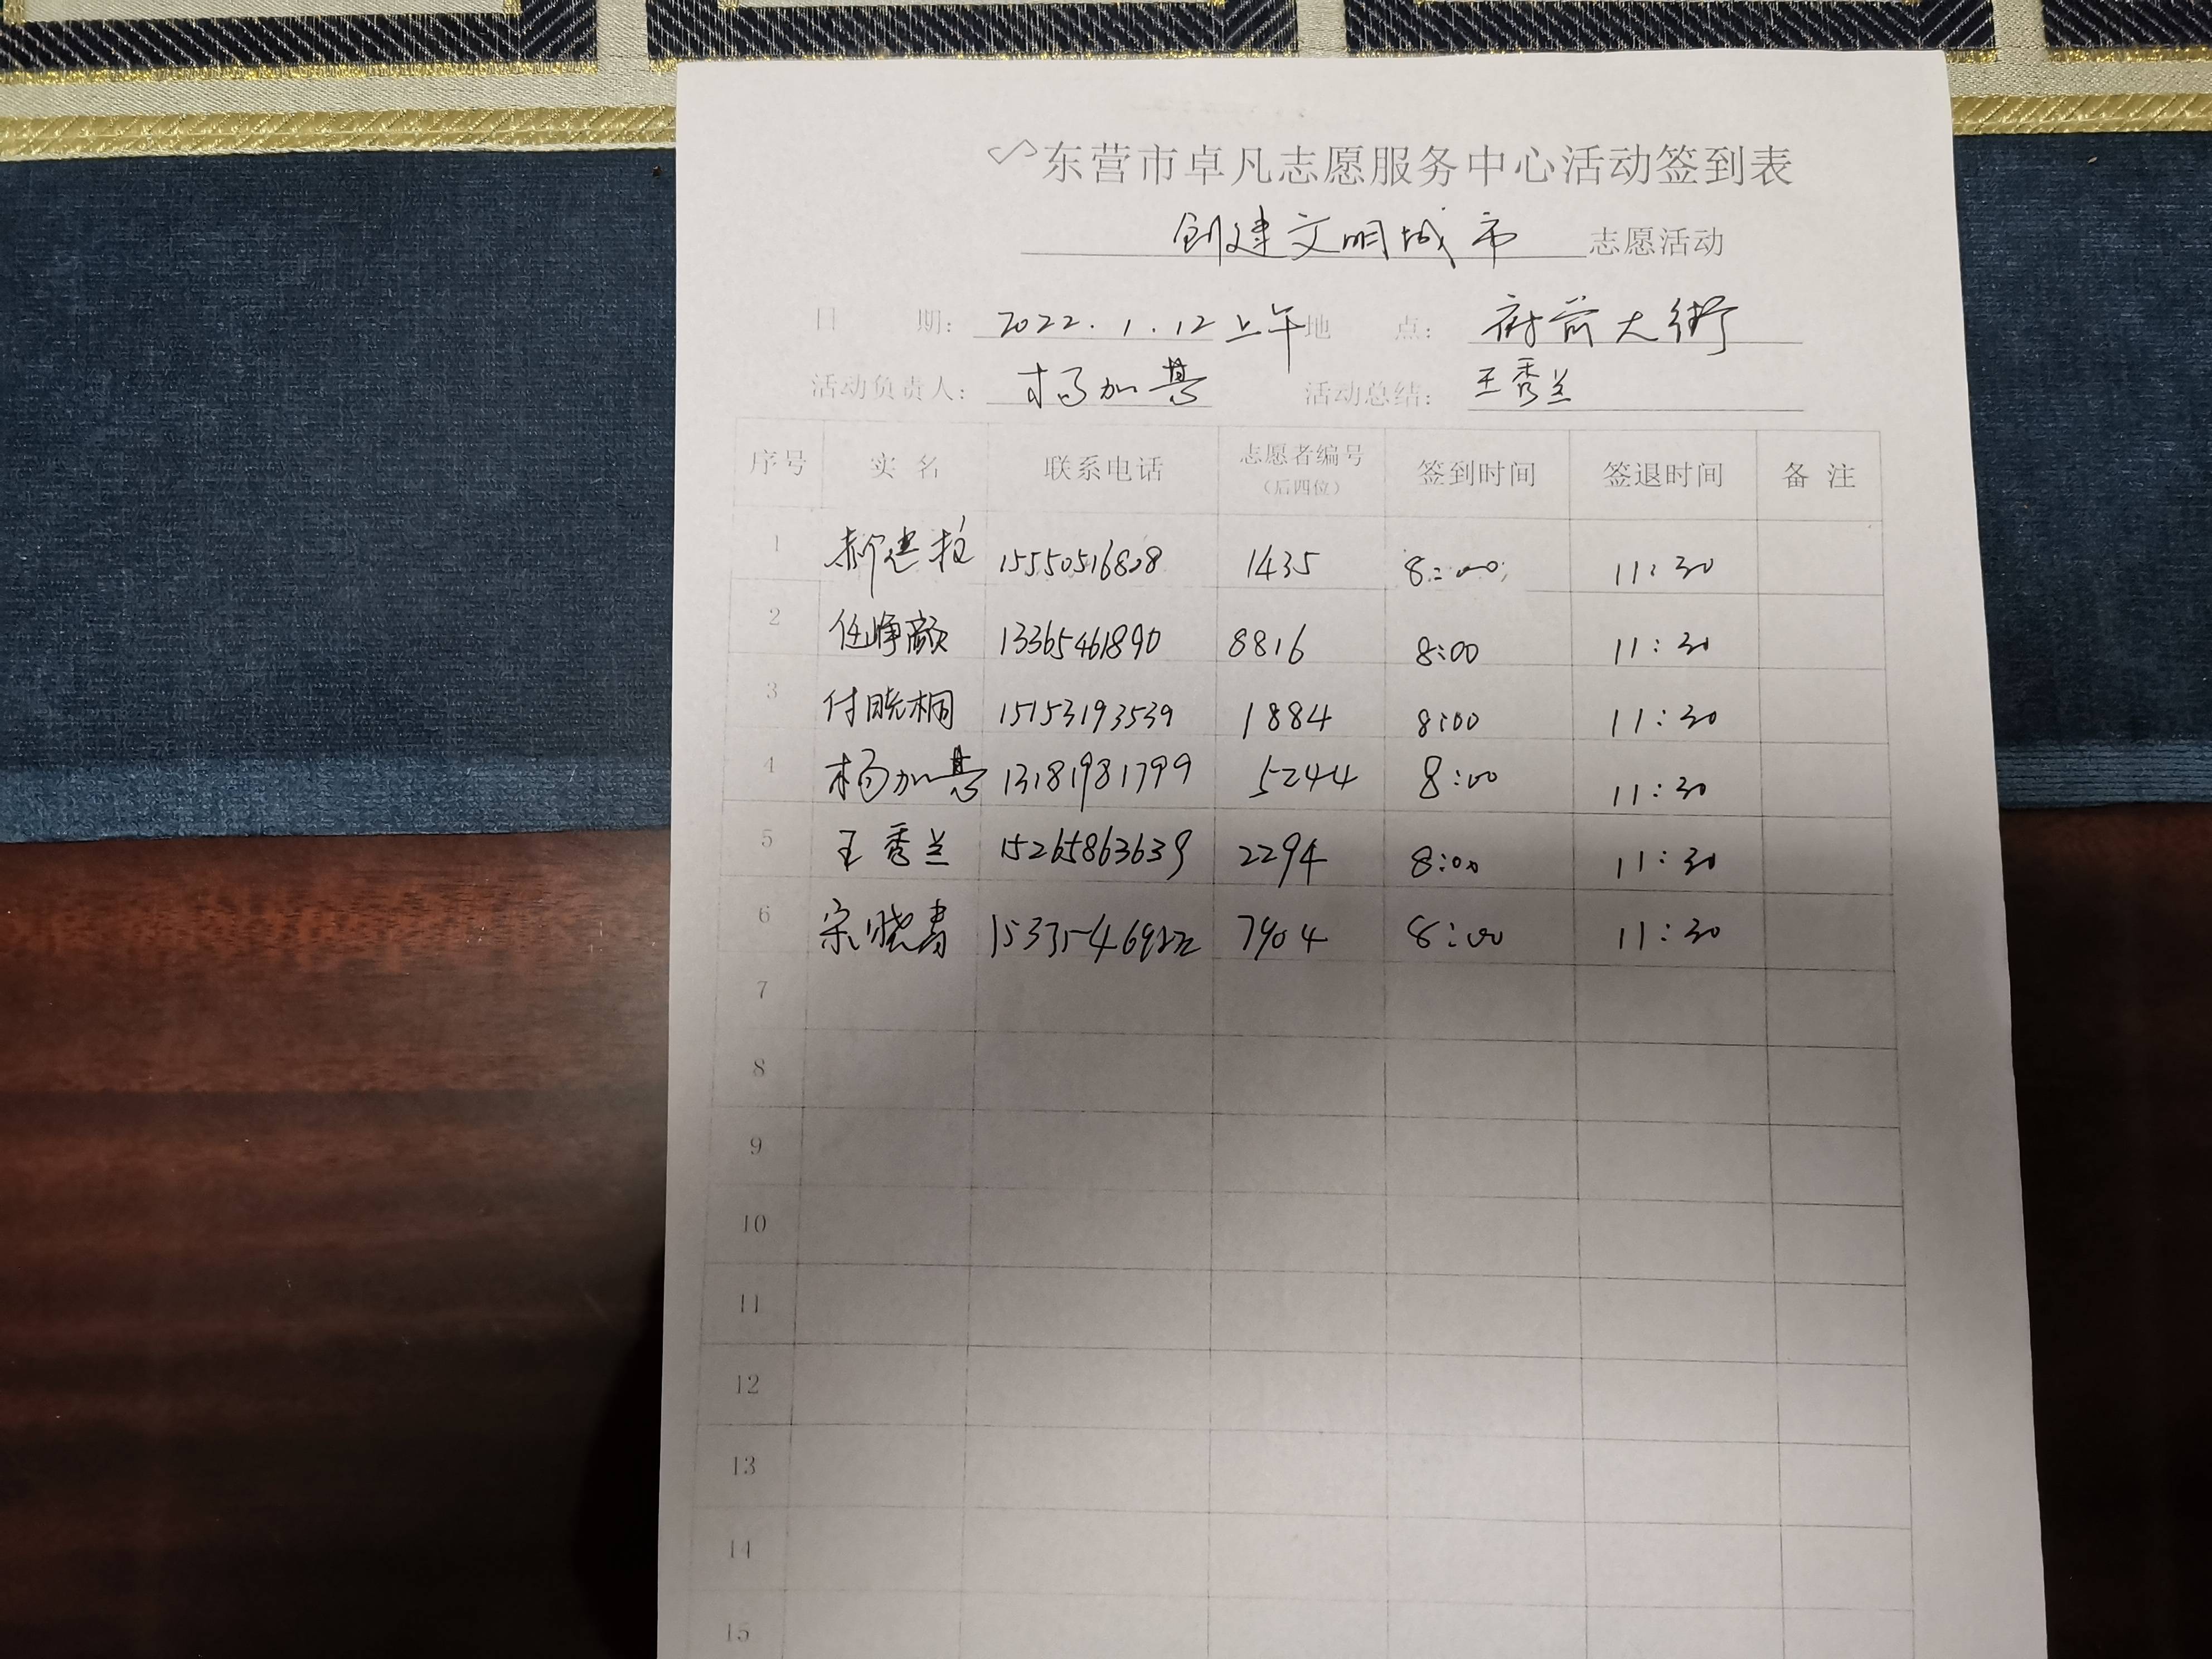 东营市卓凡志愿服务中心活动签到表
创建文明城市 志愿活动
日 期: 2022.1.12上午 地 点: 府前大街
活动负责人: 杨加慧 活动总结: 王秀兰
序号 实名 联系电话 志愿者编号（后四位） 签到时间 签退时间 备注
1 郝建 15550516808 1435 8:00 11:30
2 任峥颜 13365461890 8816 8:00 11:30
3 付晓桐 15153193539 1884 8:00 11:30
4 杨加 13181981799 5244 8:00 11:30
5 王秀兰 15265863639 2294 8:00 11:30
6 宋晓青 7904 8:00 11:30
7
8
9
10
11
12
13
14
15